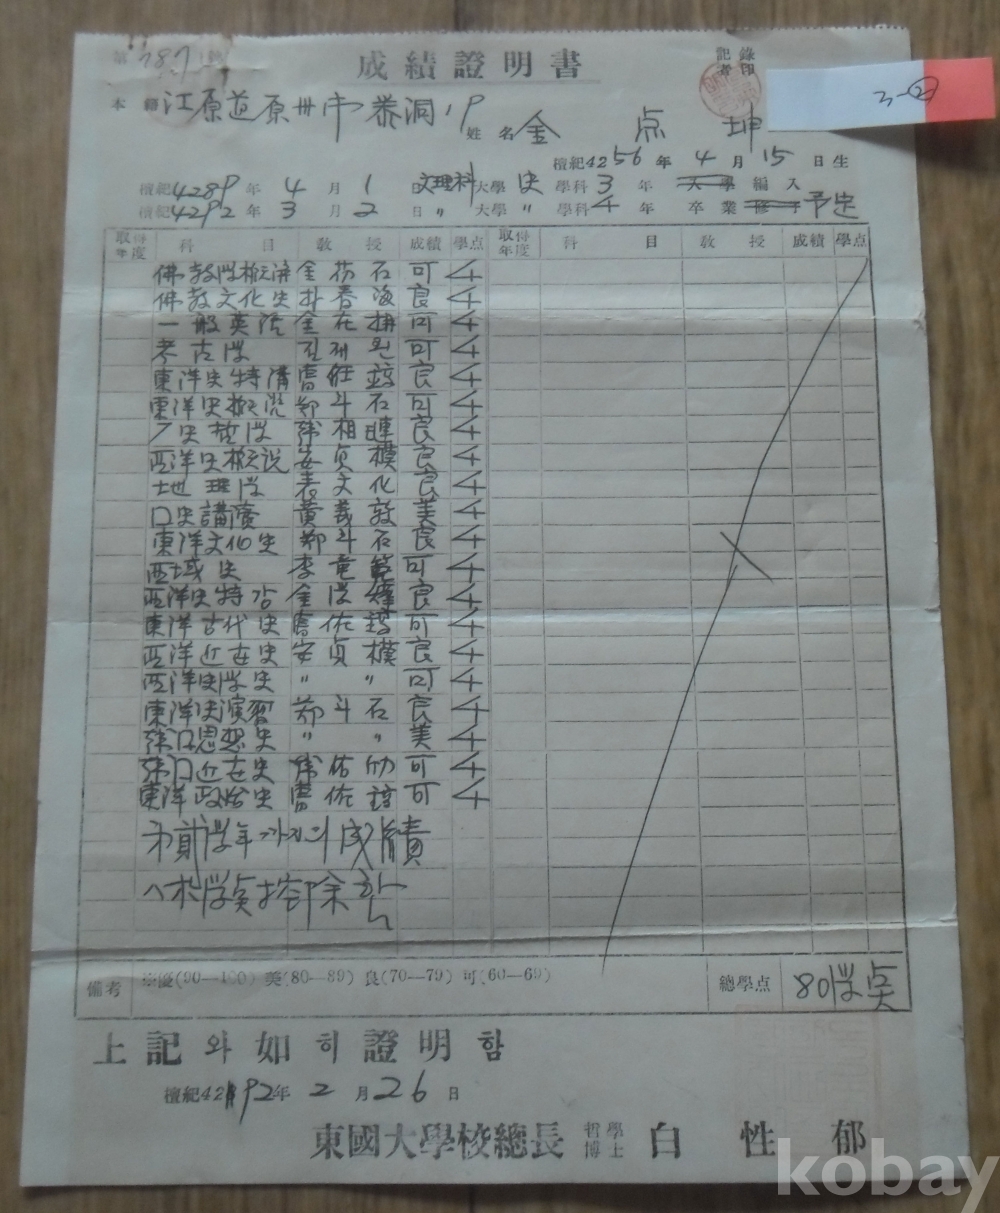 第 787 號
成績證明書
記錄者印
3-②
本籍 江原道原州市 泰洞 19
姓名 金 点 坤
檀紀4256年 4月 15日生
檀紀4289年 4月 1日 文理科大學 史 學科 3年 入學 編入
檀紀4292年 3月 2日 〃 大學 〃 學科 4年 卒業 修了 予定
取得年度 科目 教授 成績 學点 取得年度 科目 教授 成績 學点
佛教学概論 金芿石 可 4
佛教文化史 朴春海 良 4
一般英語 金在 可 4
考古学 可 4
東洋史特講 曺佐鎬 良 4
東洋史概説 鄭斗石 可 4
歷史哲学 韓相璉 良 4
西洋史概说 安貞模 良 4
地理学 表文化 良 4
口史講廣 黃義敦 美 4
東洋文化史 鄭斗石 良 4
西域史 李竜範 可 4
西洋史特강 金学 良 4
東洋古代史 曺佐鎬 可 4
西洋近世史 安貞模 良 4
西洋史学史 〃 〃 可 4
東洋史演習 鄭斗石 良 4
韓口思想史 〃 〃 美 4
韓口近世史 佑 可 4
東洋政治史 曺佐鎬 可 4
学年까지의 成績
八拾学点 控除함
備考 ※優(90—100) 美(80—89) 良(70—79) 可(60—69) 總學点 80学点
上記와 如히 證明함
檀紀4292年 2月 26日
東國大學校總長 哲學博士 白性郁
kobay